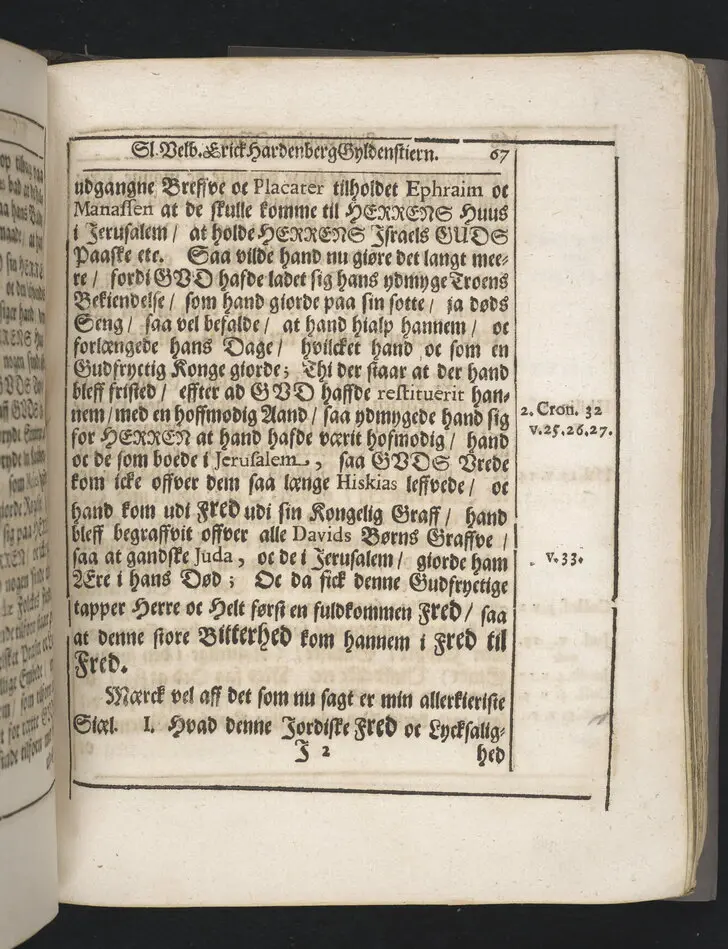 Sl. Velb. Erick Hardenberg Gyldenstiern. 67
udgangne Breffve oc Placater tilholdet Ephraim oc
Manassen at de skulle komme til HERRENS Huus
i Jerusalem / at holde HERRENS Israels GUDS
Paaske etc. Saa vilde hand nu giøre det langt mee-
re / fordi GVD hafde ladet sig hans ydmyge Troens
Bekiendelse / som hand giorde paa sin sotte / ja døds
Seng / saa vel befalde / at hand hialp hannem / oc
forlængede hans Dage / hvilcket hand oc som en
Gudfryctig Konge giorde; Thi der staar at der hand
bleff fristed / effter ad GVD haffde restituerit han-
nem / med en hoffmodig Aand / saa ydmygede hand sig
for HERREN at hand hafde værit hofmodig / hand
oc de som boede i Jerusalem, saa GVDS Vrede
kom icke offver dem saa længe Hiskias leffvede / oc
hand kom udi Fred udi sin Kongelig Graff / hand
bleff begraffvit offver alle Davids Børns Graffve /
saa at gandske Juda, oc de i Jerusalem / giorde ham
Ære i hans Død; Oc da fick denne Gudfryctige
tapper Herre oc Helt først en fuldkommen Fred / saa
at denne store Bitterhed kom hannem i Fred til
Fred.
Mærck vel aff det som nu sagt er min allerkieriste
Siæl. I. Hvad denne Jordiske Fred oc Lycksalig-
J 2 hed
2. Cron. 32
v.25.26.27.
v.33.